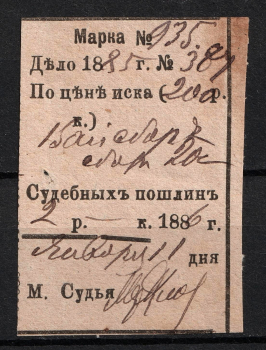 Марка № 935.
Дѣло 1885 г. № 387
По цѣнѣ иска (200 р.
к.)
сборъ 20
Судебныхъ пошлинъ
2 р. — к. 1886 г.
Января 11 дня
М. Судья